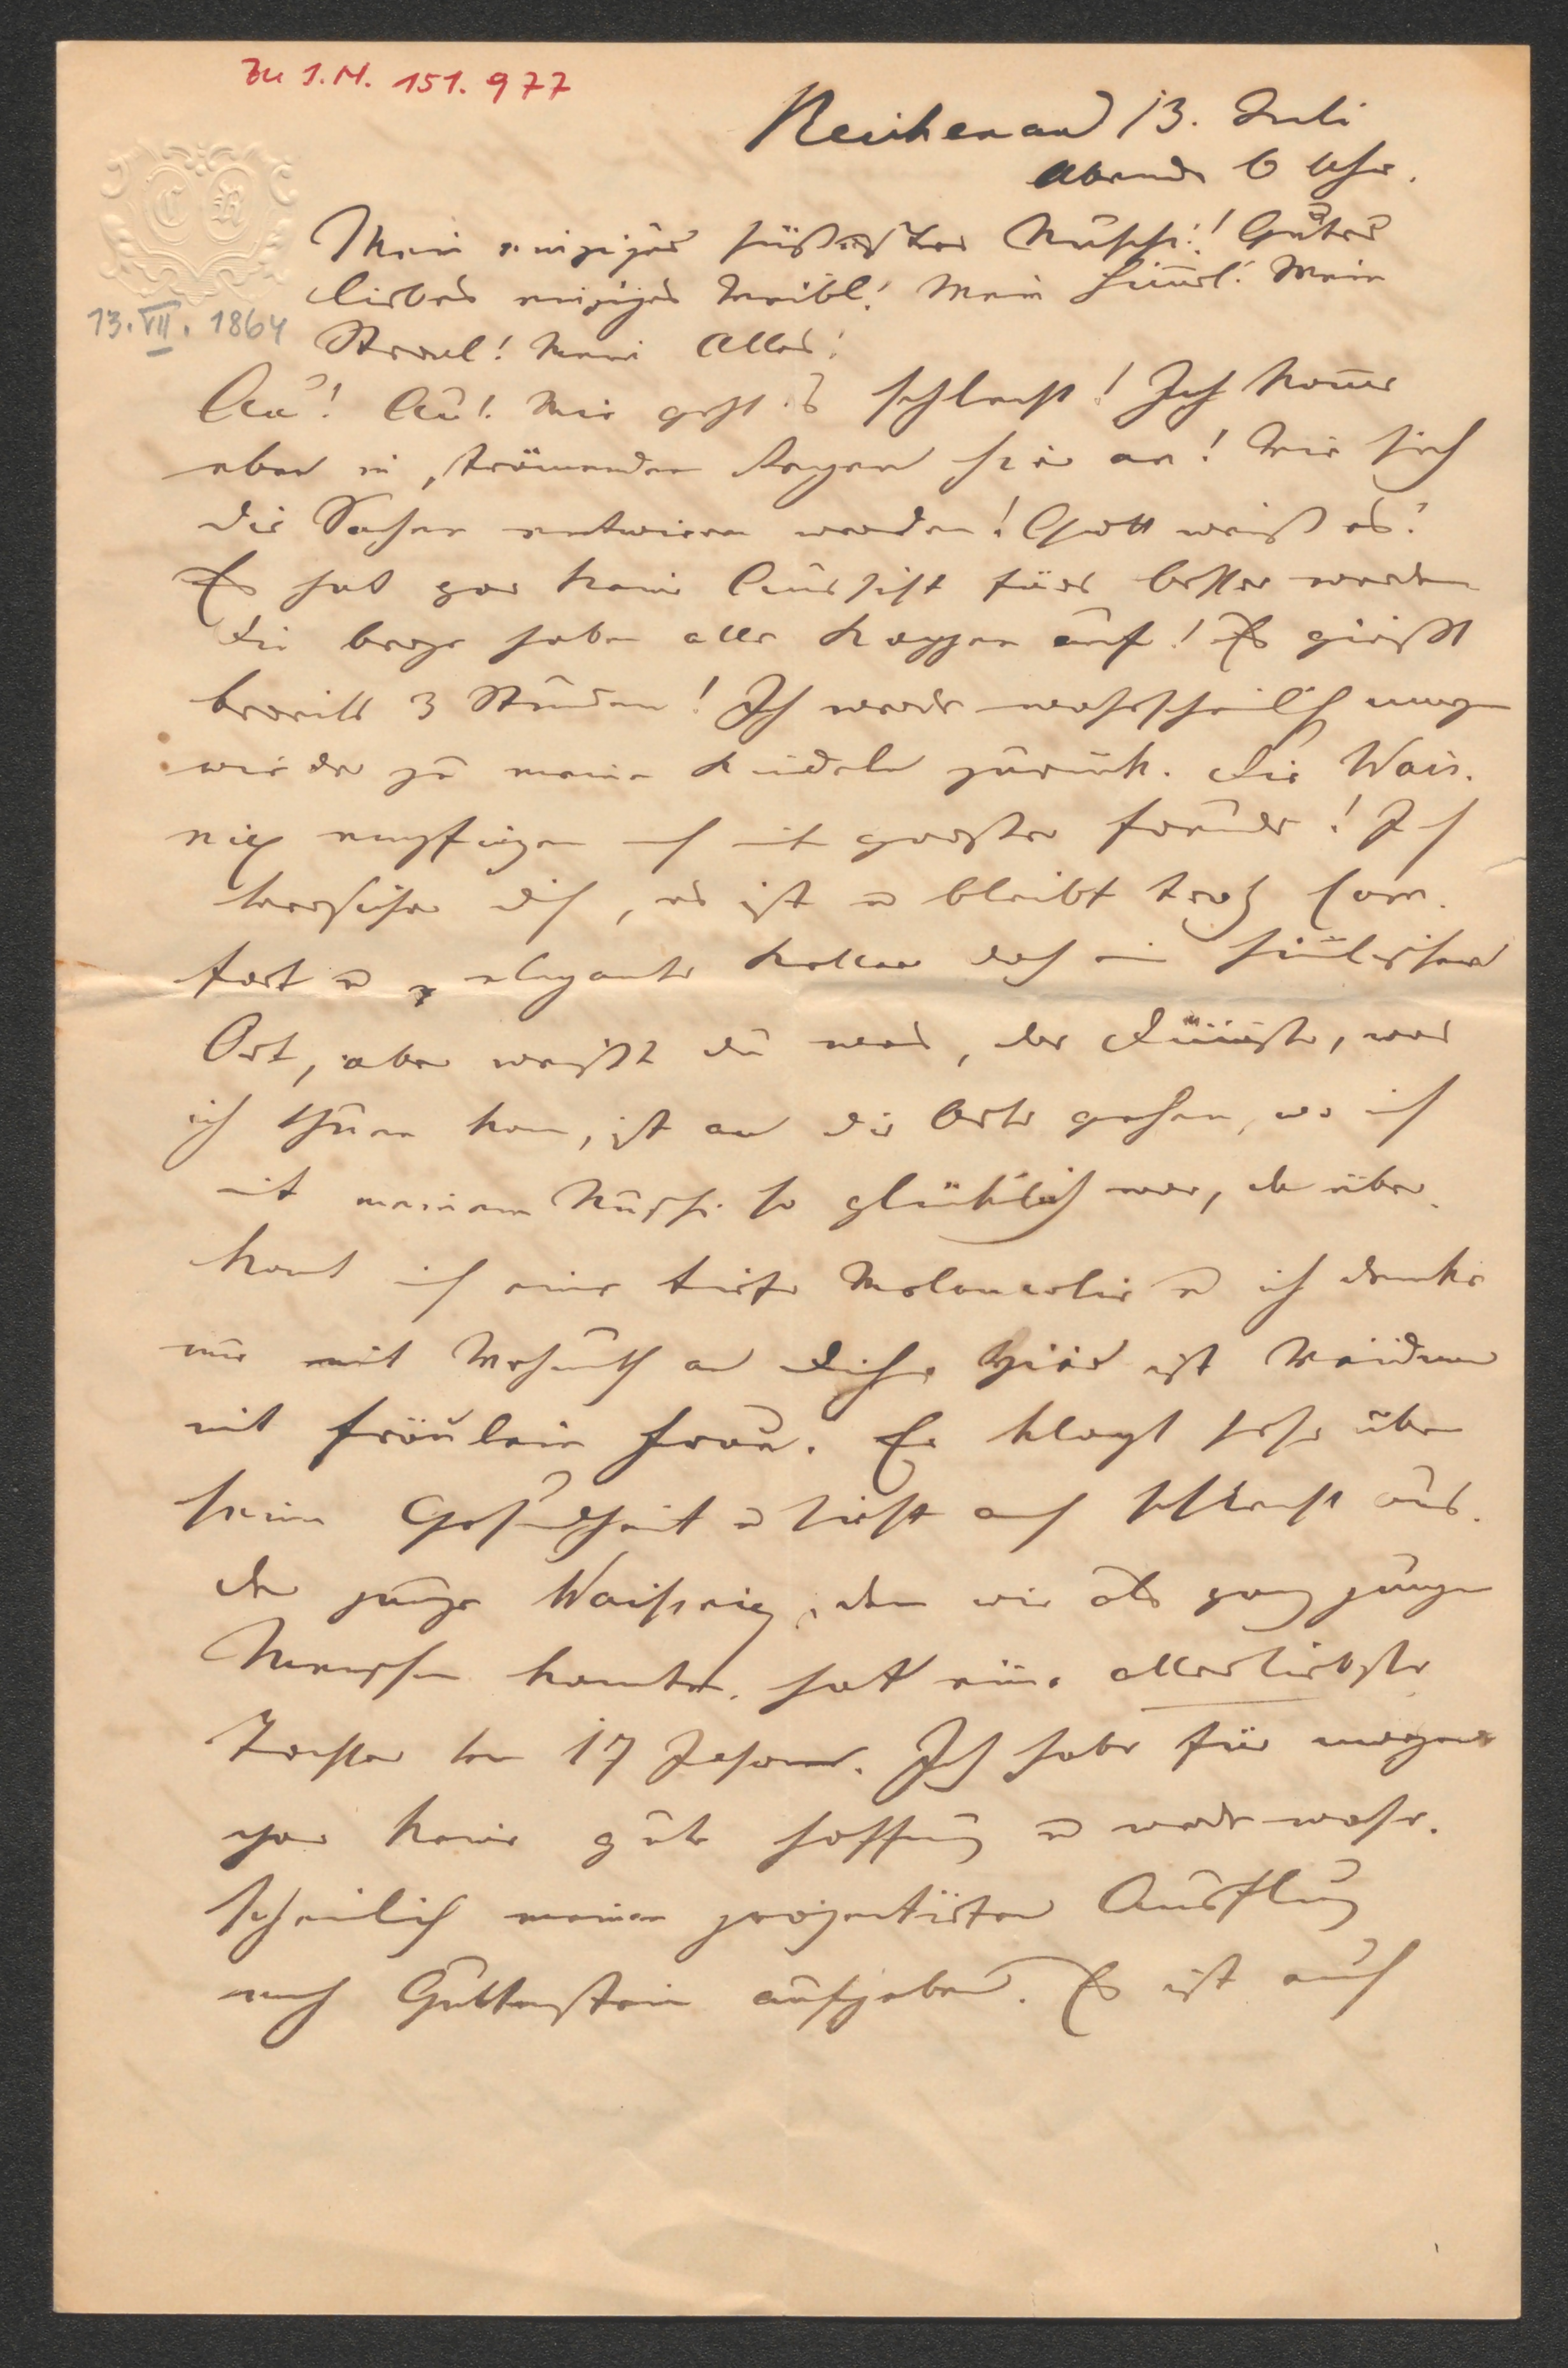 Zu I.N. 151.977
Reichenau 13. Juli
Abends 6 Uhr.
C R
13. VII. 1864
Mein einziges süßestes Muschi! Gutes
liebes einziges Weibl! Mein Himml! Mein
Alles!
Au! Au! Mir geht's schlecht! Ich komme
eben in strömenden Regen hier an! Wie sich
die Sachen entwirren werden! Gott weiß es!
Es hat gar keine Aussicht fürs besser werden
Die berge haben alle Kappen auf! Es gießt
bereits 3 Stunden! Ich werde wahrscheinlich morgen
wieder zu meine Kindeln zurück. Die Wais.
nix empfingen mich mit großer Freude! Ich
versichere dich, es ist u bleibt trotz Com.
fort u elegante Keller doch ein
Ort, aber weißt du was, das Dümmste, was
ich thuen kann, ist an die Orte gehen, wo ich
mit meinem Muschi so glücklich war, da über.
komt mich eine tiefe Melancolie u ich denke
nur mit Wehmuth an Dich. Hier ist
mit Fräulein Frau. Er klagt sehr über
seine Gesundheit u sieht auch schlecht aus.
Der junge Waissnix, den wir als ganz jungen
Menschen kannten, hat eine allerliebste
Tochter von 17 Jahren. Ich habe für morgen
gar keine gute Hoffnung u werde wahr.
scheinlich meinen projectirten Ausflug
nach Guttenstein aufgeben. Es ist auch